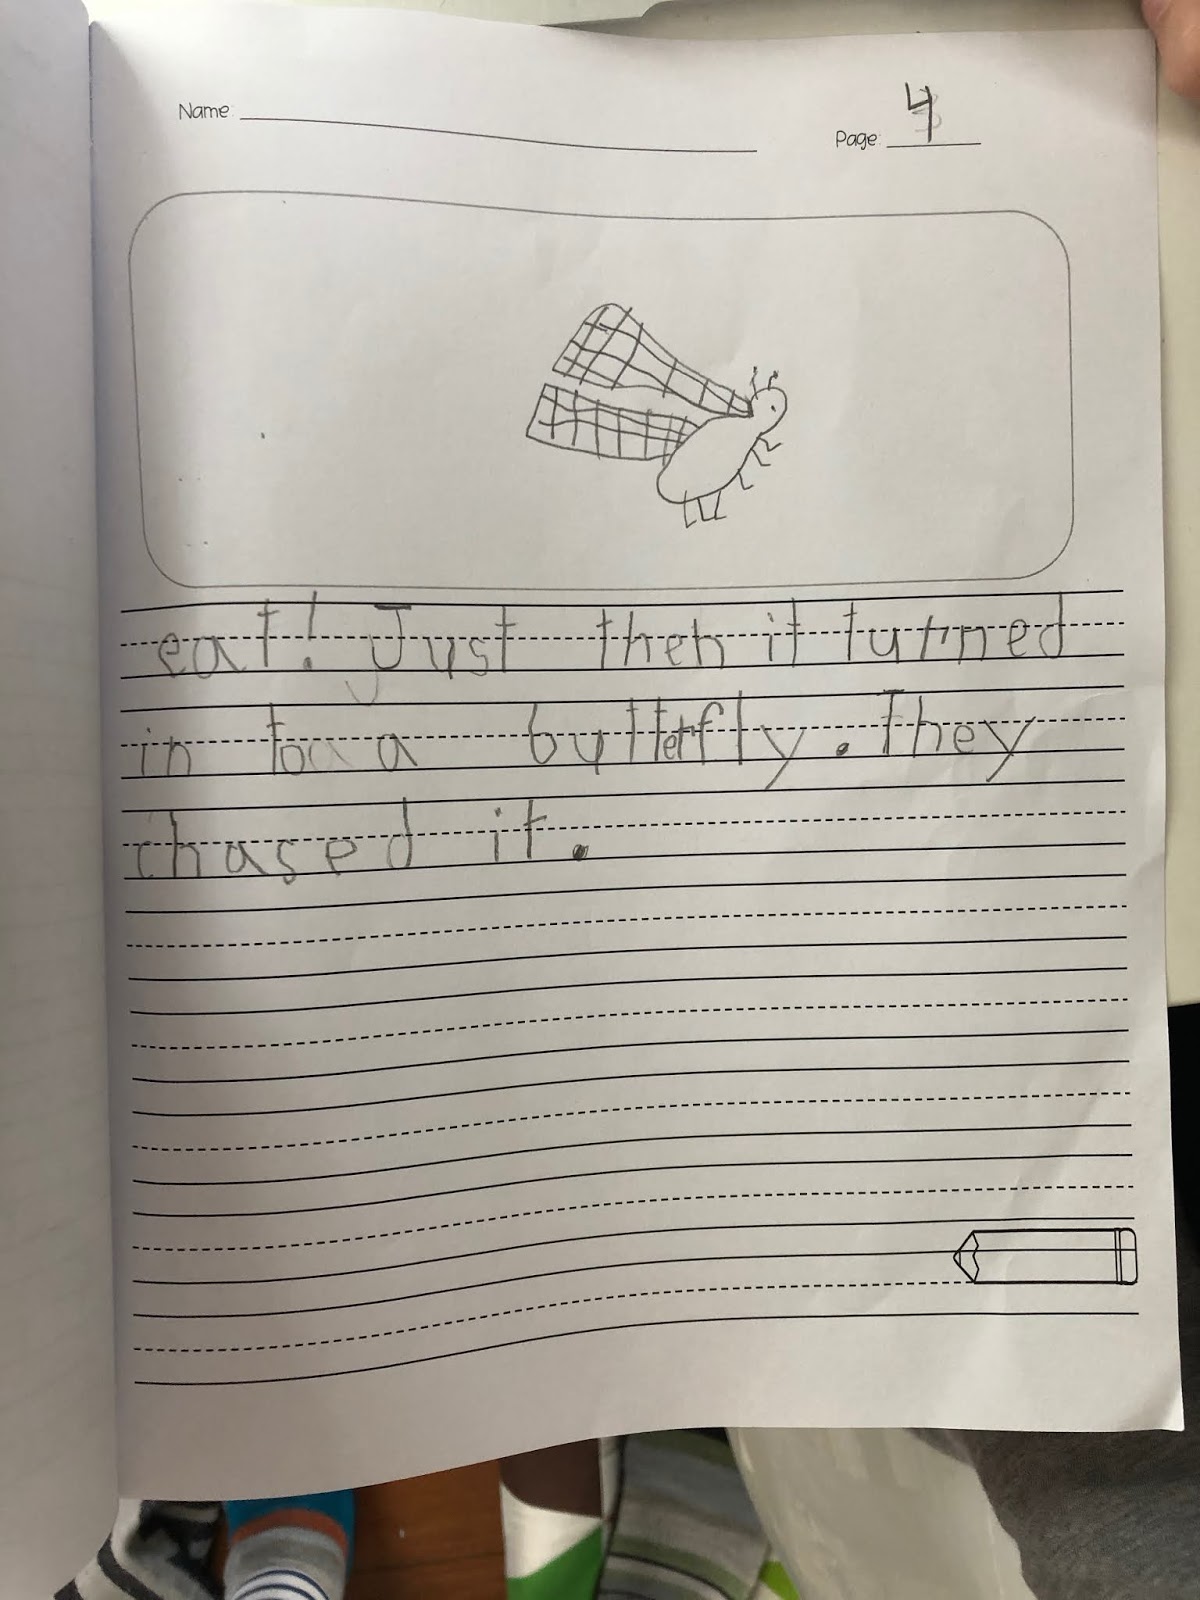 Name:
Page: 4
eat! Just then it turned
in to a butterfly. They
chased it.